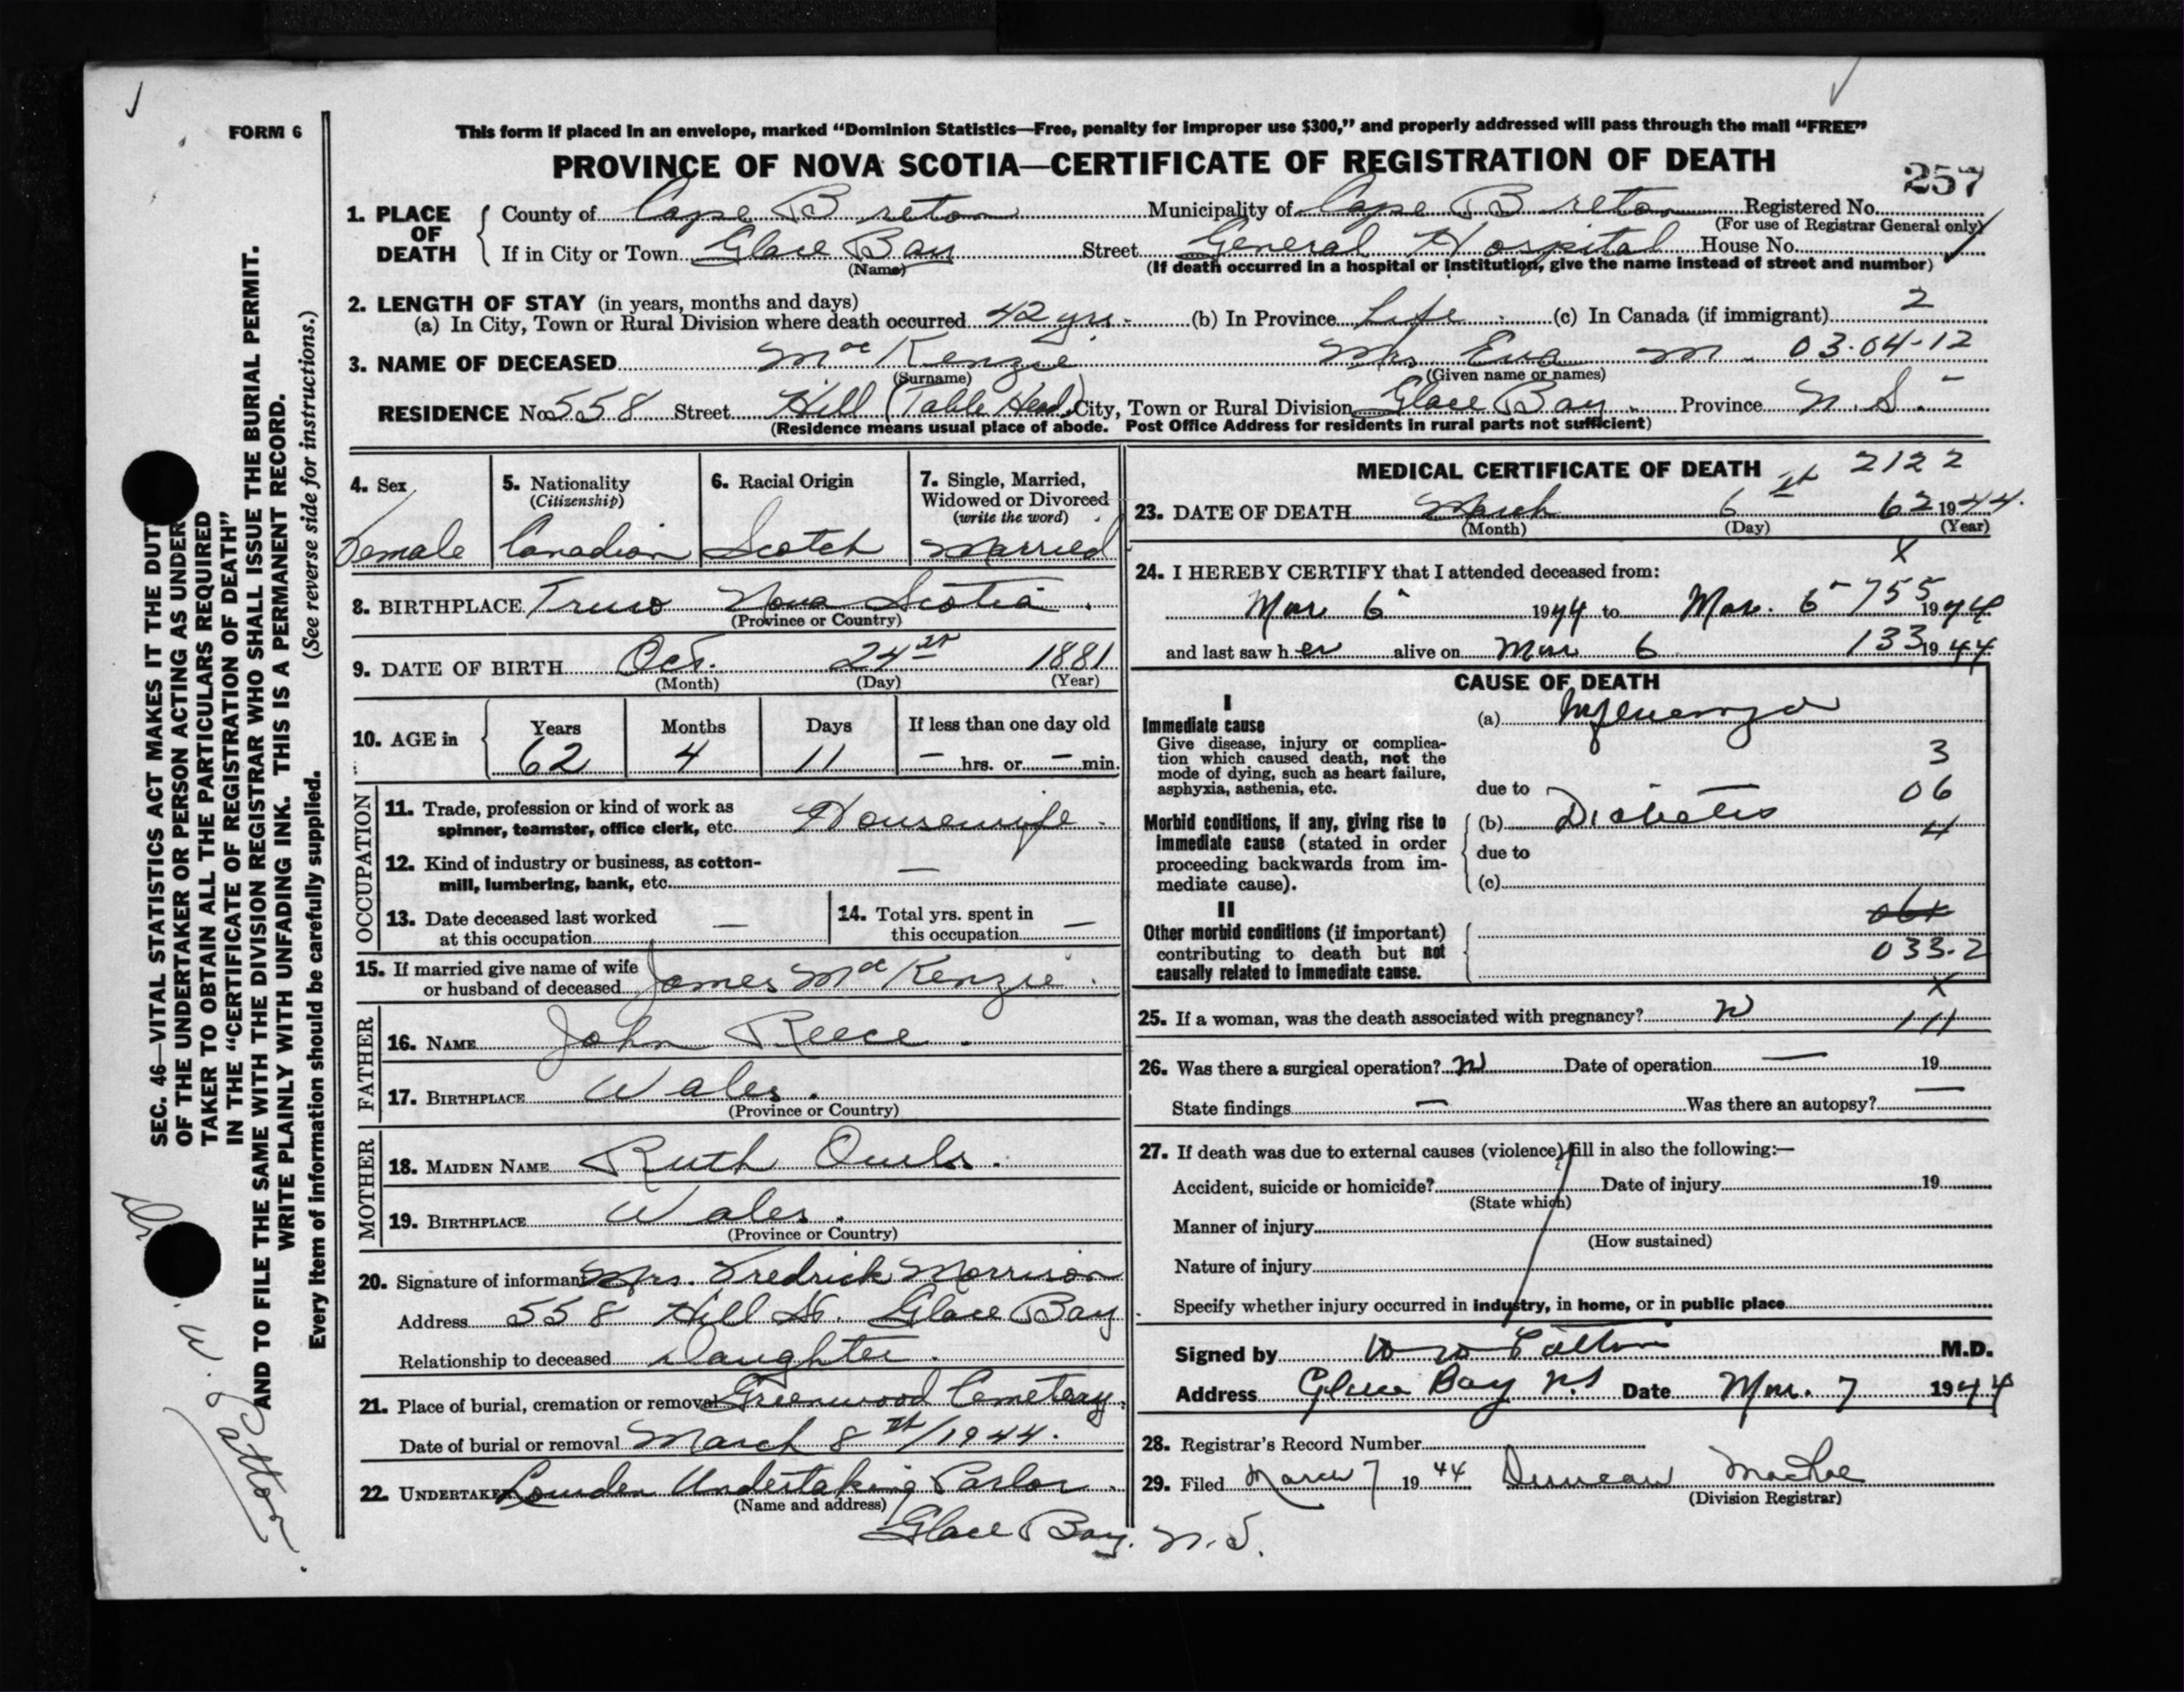 FORM 6
This form if placed in an envelope, marked “Dominion Statistics—Free, penalty for improper use $300,” and properly addressed will pass through the mail “FREE”
PROVINCE OF NOVA SCOTIA—CERTIFICATE OF REGISTRATION OF DEATH
257
1. PLACE OF DEATH County of Cape Breton Municipality of Cape Breton Registered No.
(For use of Registrar General only)
If in City or Town Glace Bay Street General Hospital House No.
(Name) (If death occurred in a hospital or institution, give the name instead of street and number)
2. LENGTH OF STAY (in years, months and days)
(a) In City, Town or Rural Division where death occurred 42 yrs. (b) In Province Life (c) In Canada (if immigrant) 2
3. NAME OF DECEASED McKenzie Mrs Eva M. 03.04-12
(Surname) (Given name or names)
RESIDENCE No. 558 Street Hill (Table Head) City, Town or Rural Division Glace Bay. Province N.S.
(Residence means usual place of abode. Post Office Address for residents in rural parts not sufficient)
4. Sex Female
5. Nationality (Citizenship) Canadian
6. Racial Origin Scotch
7. Single, Married, Widowed or Divorced (write the word) Married
8. BIRTHPLACE Truro Nova Scotia
(Province or Country)
9. DATE OF BIRTH Oct. 24th 1881
(Month) (Day) (Year)
10. AGE in Years 62 Months 4 Days 11 If less than one day old — hrs. or — min.
OCCUPATION
11. Trade, profession or kind of work as
spinner, teamster, office clerk, etc. Housewife.
12. Kind of industry or business, as cotton-
mill, lumbering, bank, etc. —
13. Date deceased last worked
at this occupation —
14. Total yrs. spent in
this occupation —
15. If married give name of wife
or husband of deceased James McKenzie.
FATHER
16. NAME John Reece.
17. BIRTHPLACE Wales.
(Province or Country)
MOTHER
18. MAIDEN NAME Ruth
19. BIRTHPLACE Wales.
(Province or Country)
20. Signature of informant Mrs. Fredrick Morrison
Address 558 Hill St. Glace Bay
Relationship to deceased Daughter.
21. Place of burial, cremation or removal Greenwood Cemetery.
Date of burial or removal March 8th/1944.
22. UNDERTAKER Undertaking Parlor.
(Name and address)
Glace Bay. N.S.
MEDICAL CERTIFICATE OF DEATH 2122
23. DATE OF DEATH March 6th 62 1944.
(Month) (Day) (Year)
x
24. I HEREBY CERTIFY that I attended deceased from:
Mar 6 1944 to Mar. 6 755 1944
and last saw her alive on Mar 6 133 1944
CAUSE OF DEATH
I
Immediate cause
Give disease, injury or complica-
tion which caused death, not the
mode of dying, such as heart failure,
asphyxia, asthenia, etc.
(a) Influenza
3
due to 06
Morbid conditions, if any, giving rise to
immediate cause (stated in order
proceeding backwards from im-
mediate cause).
(b) Diabetes 4
due to
(c)
II
Other morbid conditions (if important)
contributing to death but not
causally related to immediate cause.
033.2
x
25. If a woman, was the death associated with pregnancy? 111
26. Was there a surgical operation? Date of operation — 19
State findings — Was there an autopsy? —
27. If death was due to external causes (violence) fill in also the following:—
Accident, suicide or homicide? Date of injury 19
(State which)
Manner of injury
(How sustained)
Nature of injury
Specify whether injury occurred in industry, in home, or in public place
Signed by M.D.
Address Glace Bay N.S Date Mar. 7 1944
28. Registrar's Record Number
29. Filed March 7 1944 Duncan MacRae
(Division Registrar)
SEC. 46—VITAL STATISTICS ACT MAKES IT THE DUTY
OF THE UNDERTAKER OR PERSON ACTING AS UNDER
TAKER TO OBTAIN ALL THE PARTICULARS REQUIRED
IN THE “CERTIFICATE OF REGISTRATION OF DEATH”
AND TO FILE THE SAME WITH THE DIVISION REGISTRAR WHO SHALL ISSUE THE BURIAL PERMIT.
WRITE PLAINLY WITH UNFADING INK. THIS IS A PERMANENT RECORD.
Every item of information should be carefully supplied. (See reverse side for instructions.)